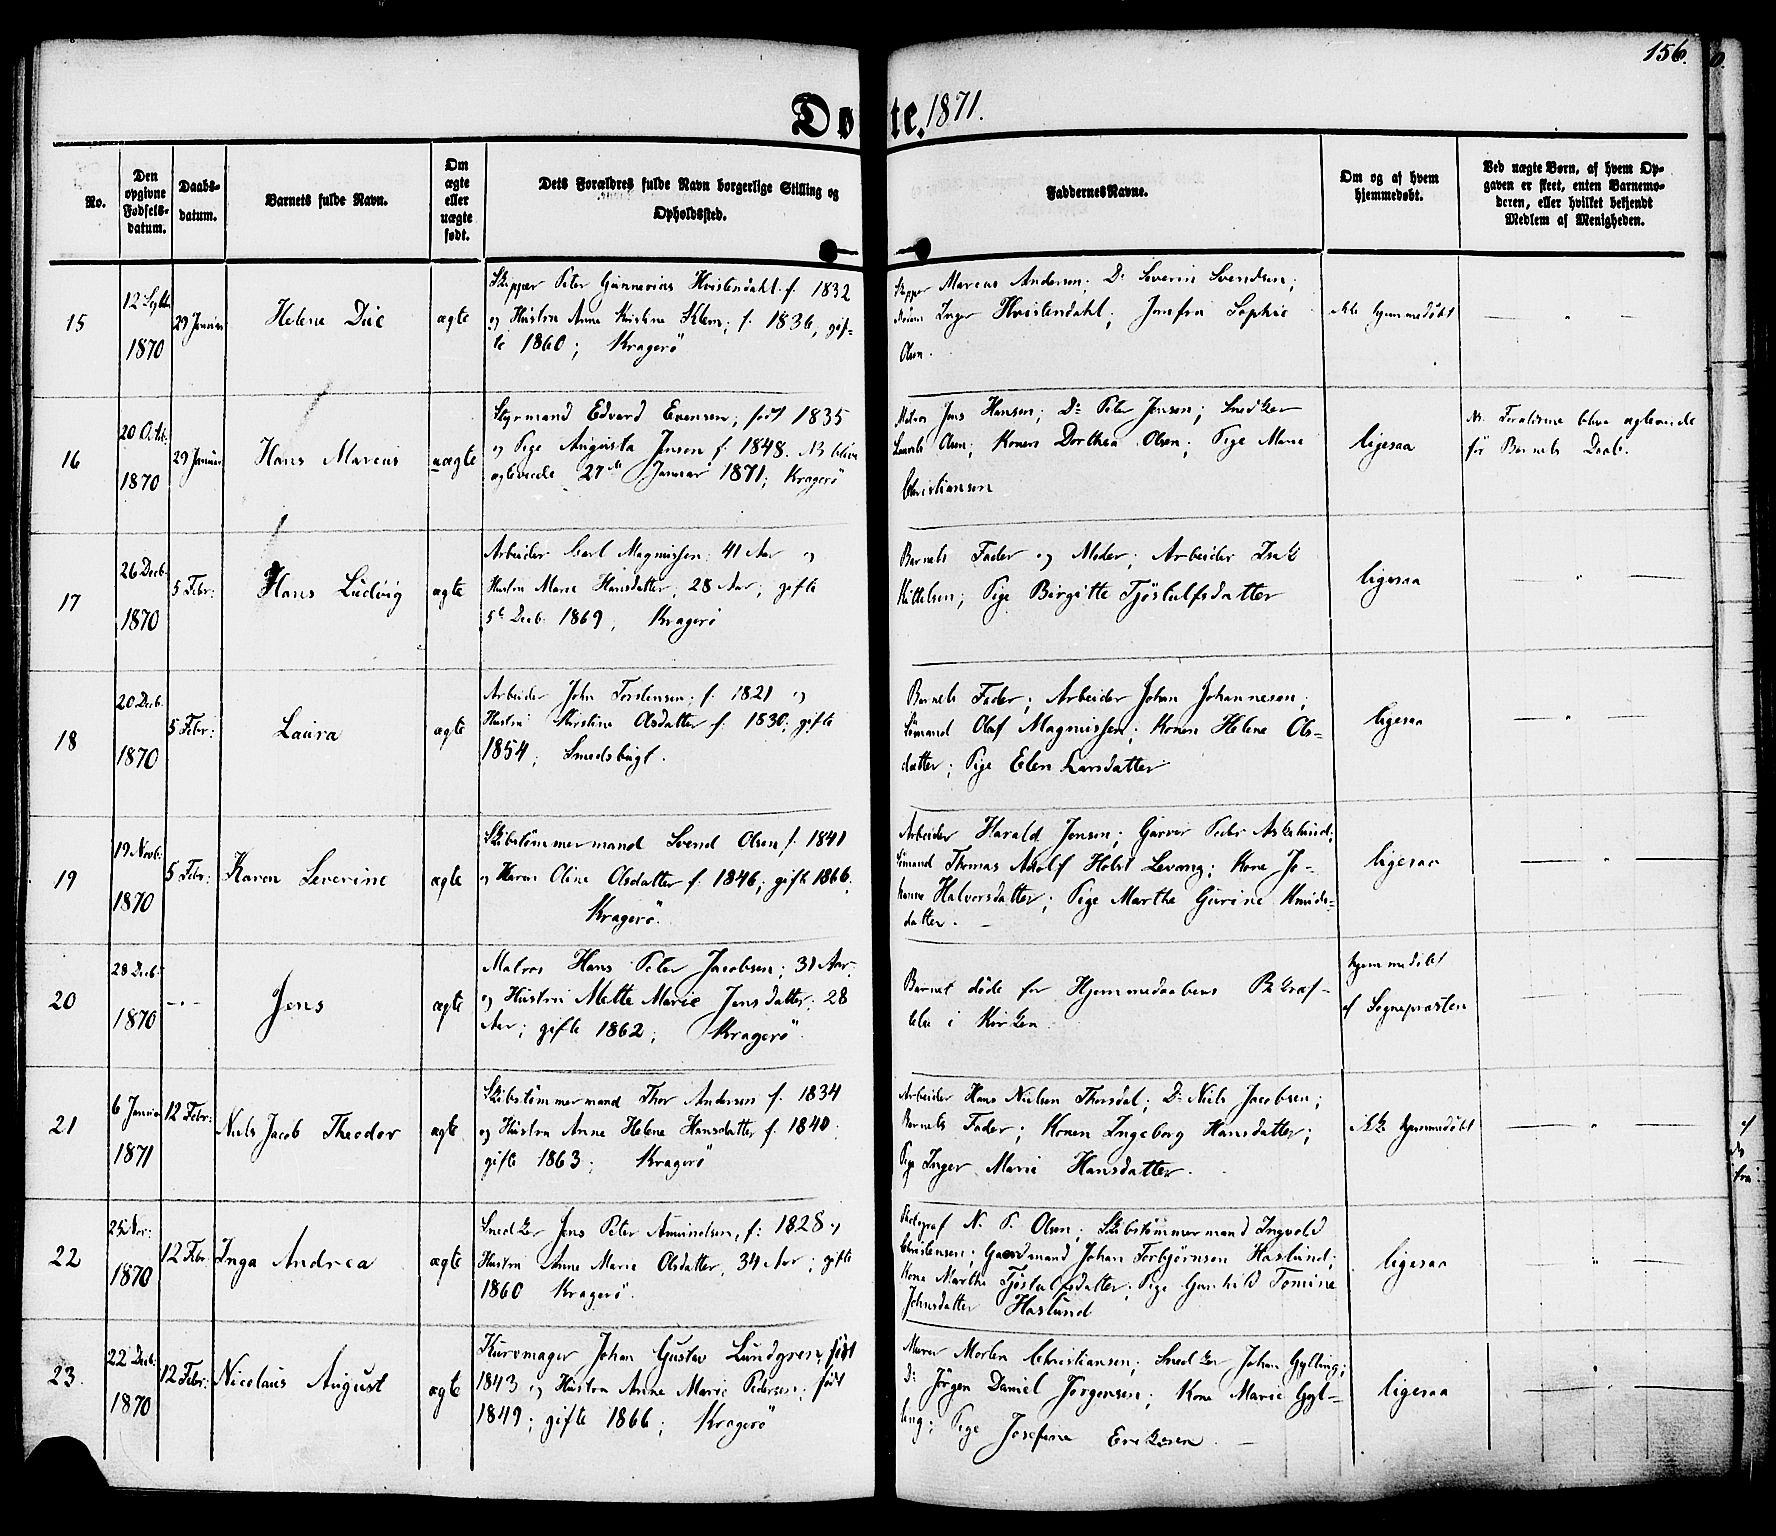 156.
Døbte. 1871.
No.
Den opgivne Fødselsdatum.
Daabsdatum.
Barnets fulde Navn.
Om ægte eller uægte født.
Dets Forældres fulde Navn borgerlige Stilling og Opholdssted.
FaddernesNavne.
Om og af hvem hjemmedøbt.
Ved uægte Børn, af hvem Opgaven er skeet, enten Barnemoderen, eller hvilket bekjendt Medlem af Menigheden.
15
12 Septbr 1870
29 Januar
Helene Due
ægte
Skipper Peter Gunnerius Hvistendahl f. 1832
og Hustru Anne Kirstine Klem; f. 1836, gif-
te 1860; Kragerö
Skipper Marcus Andersen; Do Severin Svendsen;
Inger Hvistendahl; Jomfru Sophie
Olsen.
ikke hjemmedøbt
16
20 Octbr. 1870
29 Januar
Hans Marcus
uægte
Styrmand Edvard Evensen; født 1835
og Pige Augusta Jensen f. 1848. NB bleve
ægteviede 27de Januar 1871; Kragerö
Matros Jens Hansen; Do Peter Jensen; Snedker
Laurits Olsen; Konen Dorthea Olsen; Pige Marie
Christiansen
ligesaa
NB. Forældrene bleve ægteviede
før Barnets Daab.
17
26 Decb. 1870
5 Febr:
Hans Ludvig
ægte
Arbeider Carl Magnussen; 41 Aar og
Hustru Maren Hansdatter, 28 Aar; gifte
5te Decb. 1869, Kragerö
Barnets Fader og Moder; Arbeider Isak
Kittelsen; Pige Birgitte Tjöstulfsdatter
ligesaa
18
20 Decb. 1870
5 Febr:
Laura
ægte
Arbeider John Torstensen; f. 1821 og
Hustru Kirstine Olsdatter f. 1830; gifte
1854; Smedsbugt.
Barnets Fader; Arbeider Johan Johannesen;
Sömand Olaf Magnussen; Konen Helene Ols-
datter; Pige Elen Larsdatter
ligesaa
19
19 Novb. 1870
5 Febr:
Karen Severine
ægte
Skibstömmermand Svend Olsen f. 1841
og Karen Oline Olsdatter f. 1846; gifte 1866.
Kragerö.
Arbeider Harald Jensen; Garver Peder Asklund;
Sömand Thomas Adolf Holst Levang; Kone Jo-
hanne Halvorsdatter; Pige Marthe Gurine Knuds-
datter.
ligesaa
20
28 Decb: 1870
Jens
ægte
Matros Hans Peter Jacobsen; 31 Aar,
og Hustru Mette Marie Jensdatter, 28
Aar; gifte 1862; Kragerö.
Barnet døde før Hjemmedaabens Bekræf-
telse i Kirken.
hjemmedöbt
af Sognepræsten
21
6 Januar 1871
12 Febr:
Niels Jacob Theodor
ægte
Skibstömmermand Thor Andersen f. 1834
og Hustru Anne Helene Hansdatter f. 1840;
gifte 1863; Kragerö
Arbeider Hans Nielsen Thorsdal; Do Niels Jacobsen;
Barnets Fader; Konen Ingeborg Hansdatter;
Pige Inger Marie Hansdatter.
ikke hjemmedöbt
22
25 Nov: 1870
12 Febr:
Inga Andrea
ægte
Snedker Jens Peter Amundsen, f: 1828 og
Hustru Anne Marie Olsdatter, 34 Aar; gifte
1860 Kragerö.
Photograf N. P. Olsen; Skibstömmermand Ingvald
Christensen; Gaardmand Johan Torbjørnsen Haslund;
Kone Marthe Tjöstulfsdatter; Pige Gunhild Tomine
Johnsdatter Haslund
ligesaa
23.
22 Decb: 1870
12 Febr:
Nicolaus August
ægte
Kurvmager Johan Gustav Lundgren, født
1843 og Hustru Anne Marie Pedersen; født
1849; gifte 1866; Kragerö
Murer Morten Christiansen; Snedker Johan Gylling;
Do Jörgen Daniel Jörgensen; Kone Marie Gyl-
ling; Pige Josefine Eriksen.
ligesaa